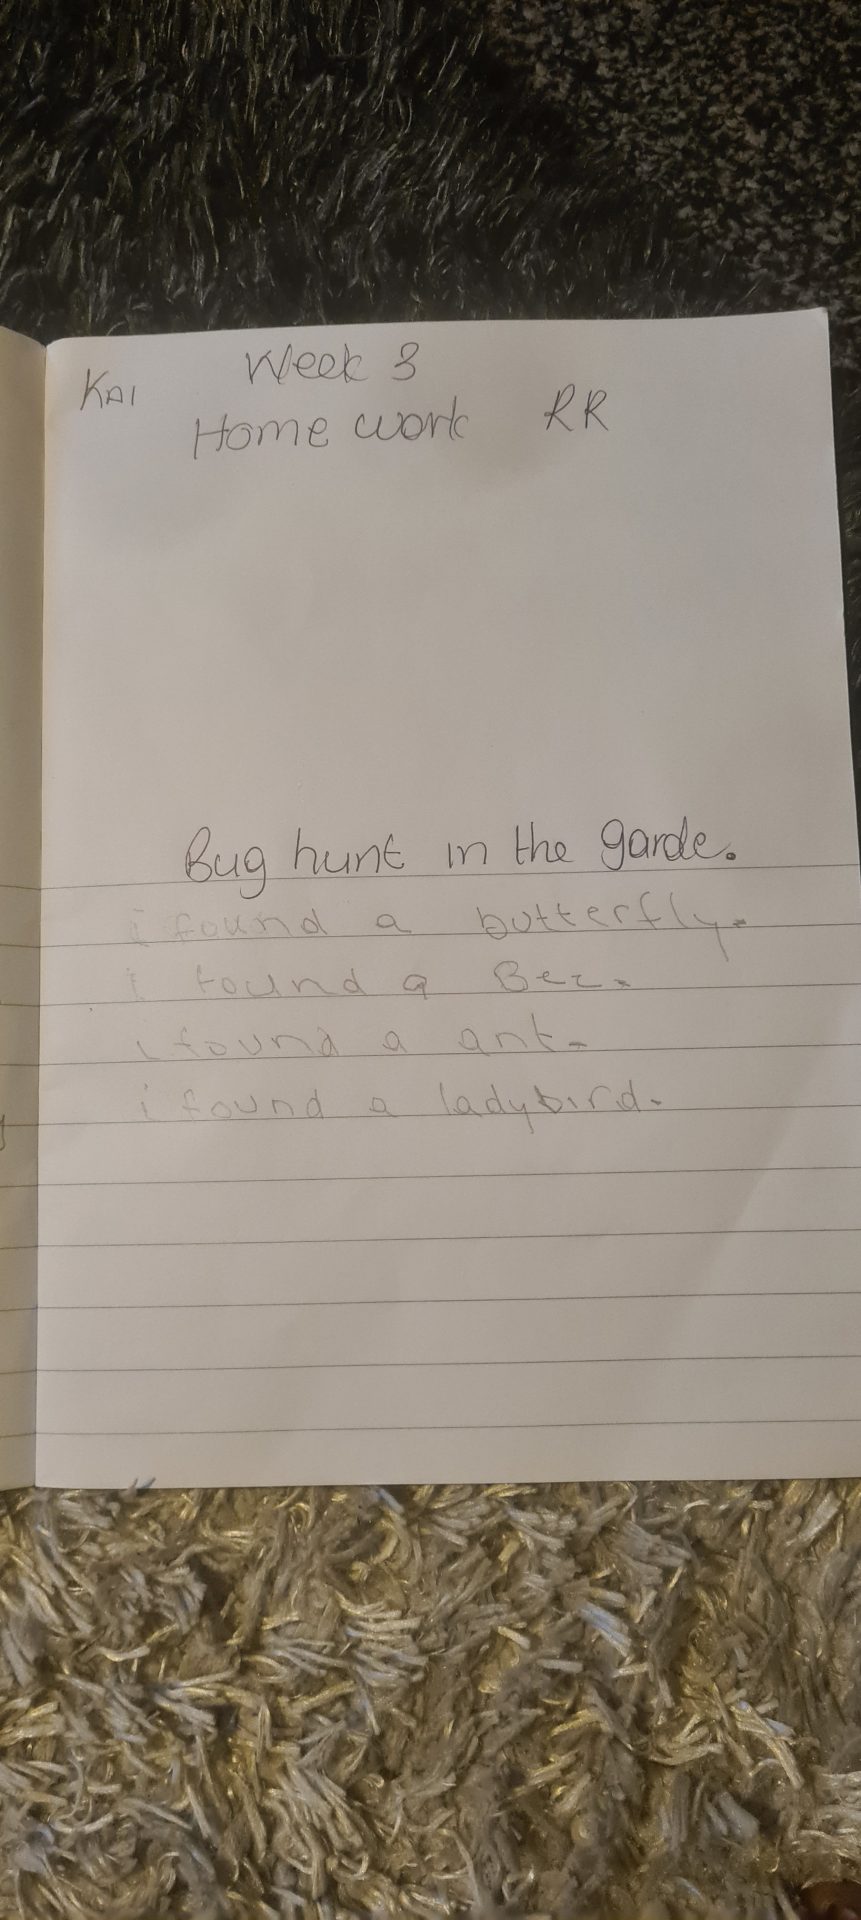 Week 3
KAI
Home work RR
Bug hunt in the garde.
i found a butterfly.
i found a Bee.
i found a ant.
i found a ladybird.